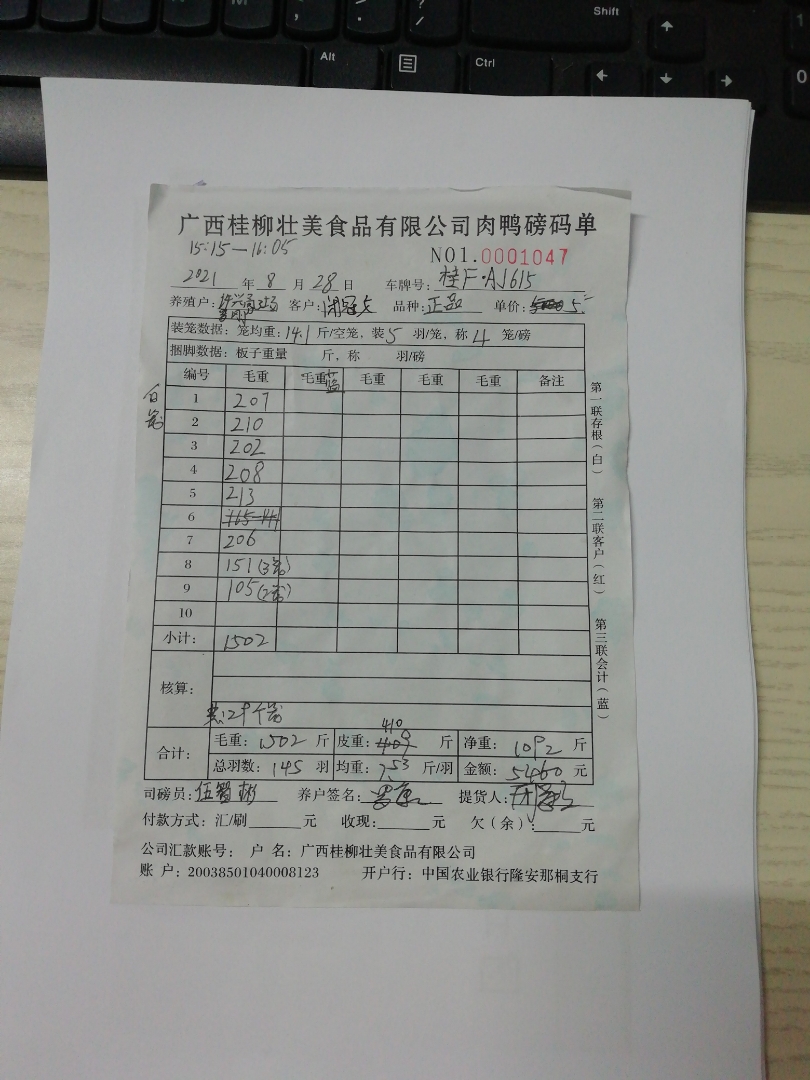 Shift
Alt
Ctrl
广西桂柳壮美食品有限公司肉鸭磅码单
15:15—16:05
NO1.0001047
2021 年 8 月 28 日 车牌号: 桂F·AJ615
养殖户: 客户: 品种: 正品 单价: 5.
装笼数据: 笼均重: 14.1 斤/空笼, 装 5 羽/笼, 称 4 笼/磅
捆脚数据: 板子重量 斤, 称 羽/磅
编号 毛重 毛重 毛重 毛重 毛重 备注
1 207
2 210
3 202
4 208
5 213
6
7 206
8 151(3笼)
9 105(2笼)
10
小计: 1502
核算:
共:29个笼
410
合计: 毛重: 1502 斤 皮重: 409 斤 净重: 1092 斤
总羽数: 145 羽 均重: 7.53 斤/羽 金额: 5460 元
司磅员: 养户签名: 提货人:
付款方式: 汇/刷______元 收现:______元 欠(余):_____元
公司汇款账号: 户 名: 广西桂柳壮美食品有限公司
账 户: 20038501040008123 开户行: 中国农业银行隆安那桐支行
第一联存根(白)
第二联客户(红)
第三联会计(蓝)